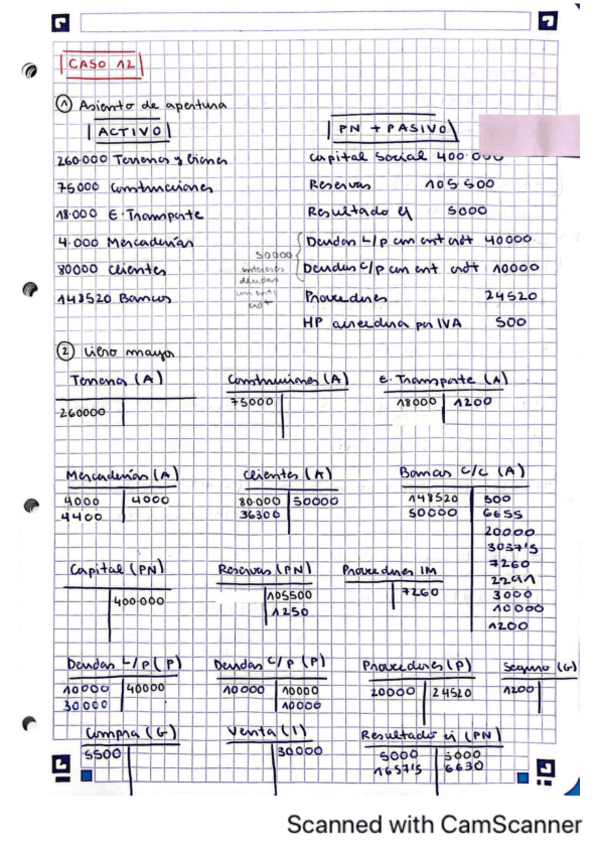 CASO 12
① Asiento de apertura
ACTIVO
PN + PASIVO
260.000 Terrenos y bienes
Capital Social 400.000
75000 Construcciones
Reservas 105 500
18.000 E. Transporte
Resultado ej 5000
4.000 Mercaderías
Deudas L/p con ent crdt 40000
50000
intereses
deudas
con ent
crdt
80000 Clientes
Deudas C/p con ent crdt 10000
148520 Bancos
Proveedores 24520
HP acreedora por IVA 500
② Libro mayor
Terrenos (A)
Construcciones (A)
E. Transporte (A)
260000
75000
18000 1200
Mercaderías (A)
Clientes (A)
Bancos C/C (A)
4000 4000
80.000 50000
148520 500
4400
36300
50000 6655
20000
3037'5
Capital (PN)
Reservas (PN)
Proveedores IM
7260
400.000
105500
7260
2291
1250
3000
10000
1200
Deudas L/P (P)
Deudas C/P (P)
Proveedores (P)
Seguro (G)
10000 40000
10000 10000
20000 24520
1200
30000
10000
Compra (G)
Venta (I)
Resultado ej (PN)
5500
30.000
5000 5000
1657'5 6630
Scanned with CamScanner